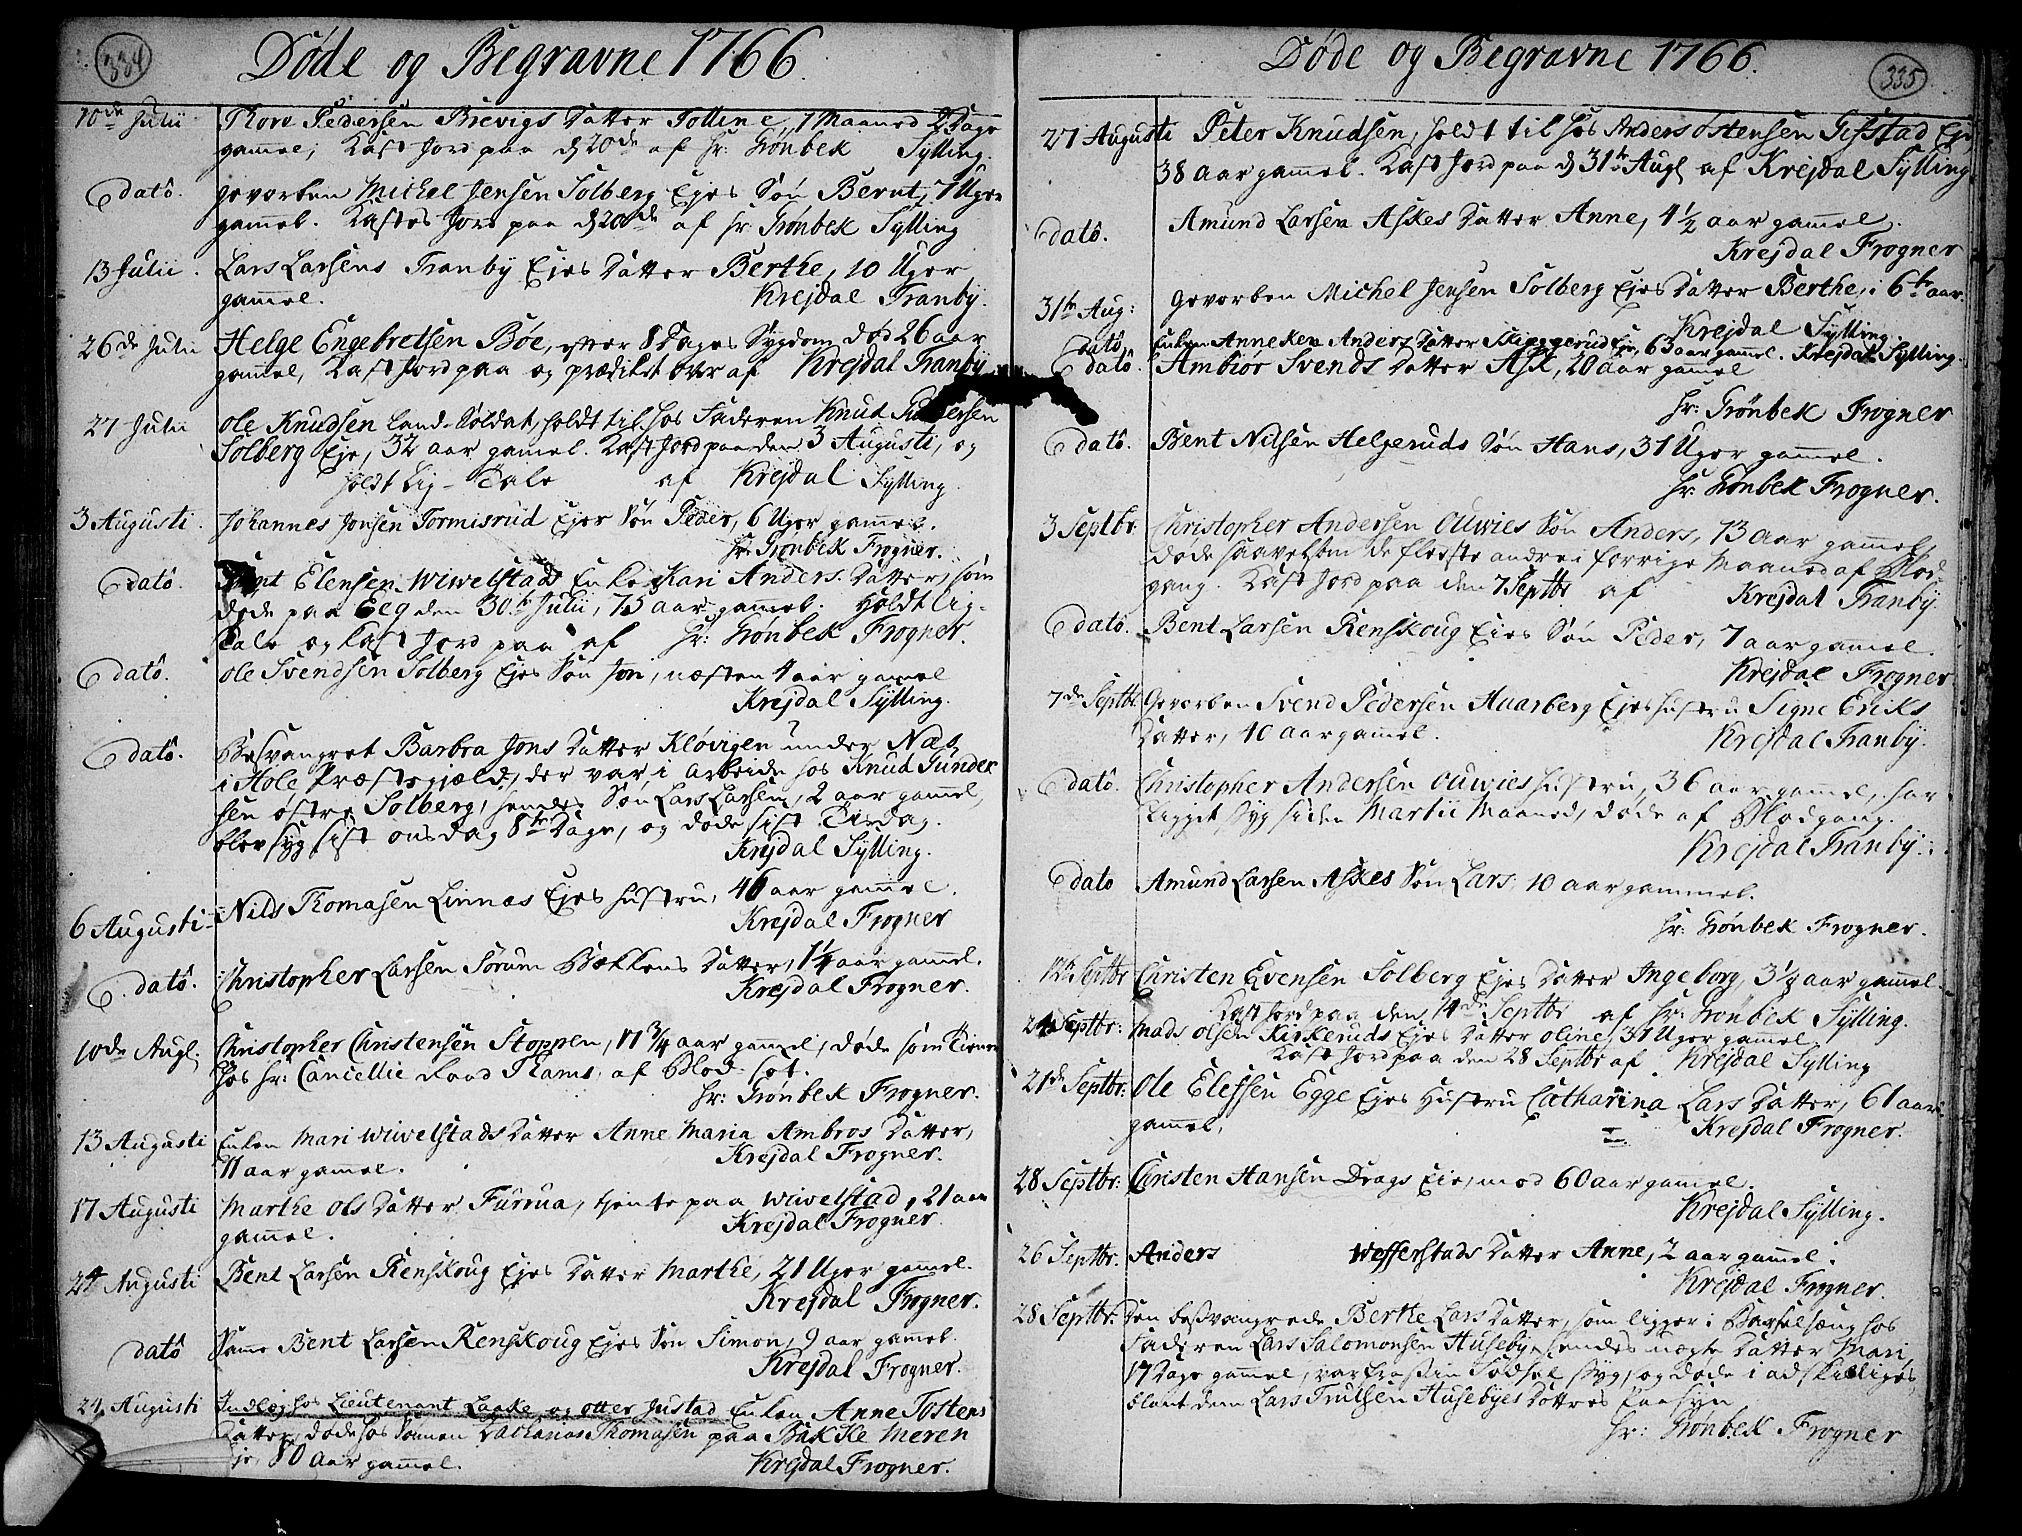 334
Døde og Begravne 1766.
10de Julii Thore Pedersen Brevigs Datter Jolline, 7 Maaned 2 Dage
gammel; Kast Jord paa d 20de af Hr: Grønbek Sylling.
dato. Gevorben Michel Jensen Solberg Ejes Søn Bernt, 7 Uger
gammel. Kastes Jord paa d 20de af Hr. Grønbek Sylling
13 Julii. Lars Larsens Tranby Ejes Datter Berthe, 10 Uger
gam̄el. Krejdal Tranby.
26de Julii Helge Engebretsen Bøe, efter 8 Dages Sygdom død 26 aar
gam̄el, Kast Jord paa og prædiket over af Krejdal Tranby
27 Julii Ole Knudsen Land-Soldat, holdt til hos Faderen Knud Gundersen
Solberg Eje, 32 aar gam̄el. Kast Jord paa den 3 Augusti, og
holdt Lig-Tale af Krejdal Sylling
3 Augusti. Johannes Jonsen Tormisrud Ejes Søn Peder, 6 Uger gam̄el.
Hr: Grønbek Frogner.
dato. Elensen Wiwelstads Enke Kari Anders Datter, som
døde paa Eeg den 30te Julii, 75 aar gam̄el. Holdt Lig-
Tale og kast Jord paa af Hr: Grønbek Frogner.
dato. Ole Svendsen Solberg Ejes Søn Jon, næsten 4 aar gam̄el
Krejdal Sylling.
dato. Besvangret Barbra Jons Datter Kløvigen under Næs
i Hole Præstegjæld, der var i Arbeide hos Knud Gunder-
sen østre Solberg, hendes Søn Lars Larsen, 2 aar gam̄el,
blev syg sist onsdag 8te Dage, og døde sist Tirsdag.
Krejdal Sylling.
6 Augusti Nils Thomasen Linnæs Ejes Hustru, 46 aar gam̄el.
Krejdal Frogner
dato. Christopher Larsen Sørum Bækkens Datter, 1 1/4 aar gam̄el.
Krejdal Frogner.
10de Augl. Christopher Christensen Stoppen, 17 3/4 aar gam̄el, døde som Tiener
hos Hr: Cancellie Raad Thams, af Blod-Sot.
Hr: Grønbek Frogner.
13 Augusti Enken Mari Wiwelstads Datter Anne Maria Ambros Datter,
11 aar gam̄el. Krejdal Frogner.
17 Augusti Marthe Ols Datter Furrua, tjente paa Wiwelstad, 21 aar
gam̄el. Krejdal Frogner.
24 Augusti Bent Larsen Renskoug Ejes Datter Marthe, 21 Uger gam̄el.
Krejdal Frogner.
dato Samme Bent Larsen Renskoug Ejes Søn Simon, 9 aar gam̄el.
Krejdal Frogner.
24 Augusti Indlæg hos Lieutenant Laake og Otter Justad Enken Anne Tostens
Datter, døde hos Sønnen Zacharias Thomasen paa Bakke Meren
Eje, 80 Aar gam̄el. Krejdal Frogner.
335
Døde og Begravne 1766.
27 Augusti Peter Knudsen, holdt til hos Anders Østensen Gifstad Eje
38 aar gam̄el. Kast Jord paa d 31te Augl af Krejdal Sylling
dato. Amund Larsen Askes Datter Anne, 4 1/2 aar gam̄el.
Krejdal Frogner
31te Aug: Gevorben Michel Jensen Solberg Ejes Datter Berthe, i 6te aar.
Krejdal Sylling.
dato Enken Anneken Anders Datter Skieggerud Eje, 63 aar gam̄el. Krejdal Sylling.
dato. Ambiør Svends Datter Ask, 20 aar gam̄el
Hr: Grønbek Frogner
dato. Bent Nilsen Helgeruds Søn Hans, 31 Uger gam̄el.
Hr: Grønbek Frogner.
3 Septbr. Christopher Andersen Ouwies Søn Anders, 13 aar gam̄el,
døde saavelsom de fleeste andre i forrige Maaned af Blod-
gang. Kast Jord paa den 7 Septbr af Krejdal Tranby.
dato. Bent Larsen Renskoug Ejes Søn Peder, 7 aar gam̄el.
Krejdal Frogner
7de Septbr. Gevorben Svend Pedersen Auarberg Ejes Hustru Signe Eriks
Datter, 40 aar gam̄el. Krejdal Tranby.
dato. Christopher Andersen Ouwies Hustru, 36 aar gam̄el, har
Ligget syg siden Martii Maaned, døde af Blodgang.
Krejdal Tranby.
dato Amund Larsen Askes Søn Lars, 10 aar gammel.
Hr: Grønbek Frogner.
12te Septbr Christen Evensen Solberg Ejes Datter Ingeborg, 3 1/2 aar gam̄el.
Kast Jord paa den 14de Septbr af Hr: Grønbek Sylling.
24 Septbr: Mads Olsen Kirkeruds Ejes Datter Oline, 31 Uger gam̄el
Kast Jord paa den 28 Septbr af. Krejdal Sylling
21de Septbr: Ole Elefsen Egge Ejes Hustru Catharina Lars Datter, 61 aar
gam̄el. Krejdal Frogner.
28 Septbr: Christen Hansen Drags Eje, mod 60 aar gam̄el.
Krejdal Sylling.
26 Septbr. Anders Wefferstads Datter Anne, 2 aar gam̄el.
Krejdal Frogner.
28 Septbr. Den besvangrede Berthe Lars Datter, som ligger i Barselseng hos
Faderen Lars Salomonsen Huseby, hendes uægte Datter Mari
17 Dage gam̄el, var fra sin Fødsel syg, og døde i adskilliges,
blant dem Lars Trulsen Husebyes Datters Paasyn
Hr: Grønbek Frogner